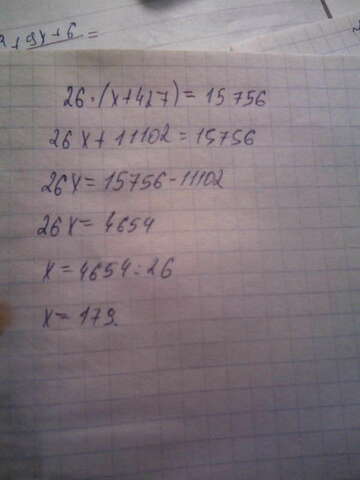 +9x+6=
26·(x+427)=15756
26x+11102=15756
26x=15756-11102
26x=4654
x=4654:26
x=179.